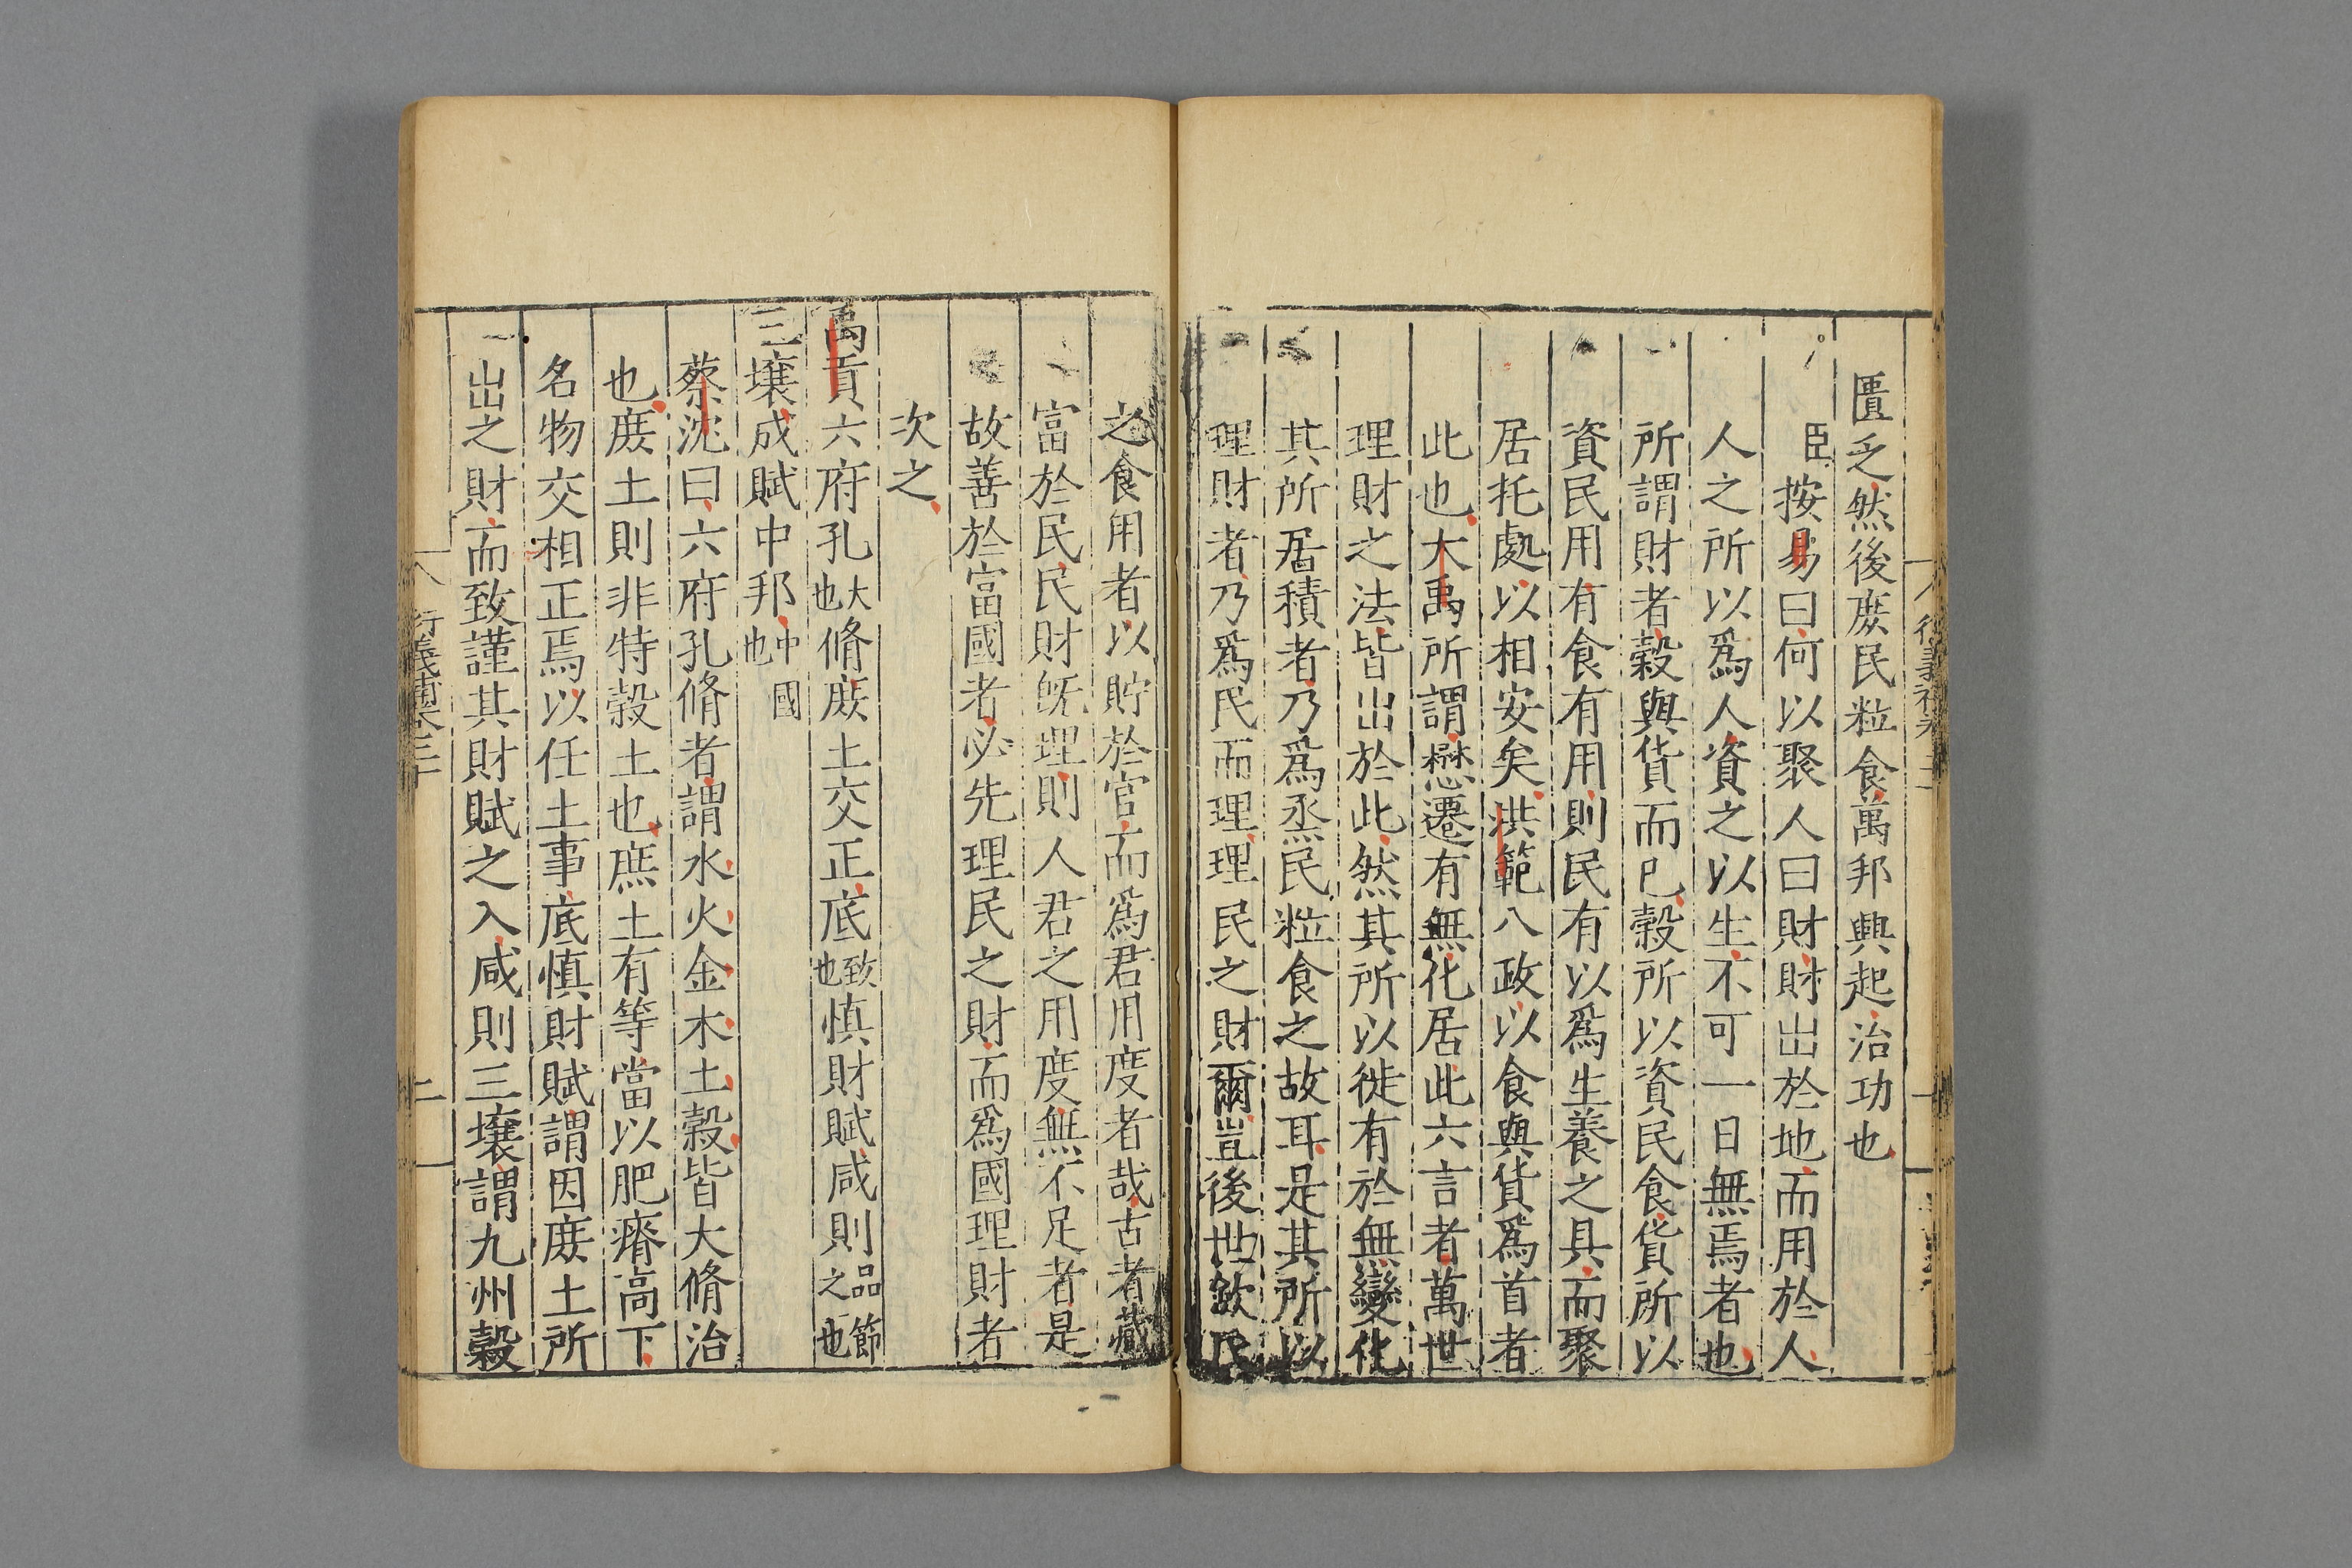 匱乏然後庶民粒食萬邦興起治功也
臣按易曰何以聚人曰財財出於地而用於人
人之所以爲人資之以生不可一日無焉者也
所謂財者穀與貨而已穀所以資民食貨所以
資民用有食有用則民有以爲生養之具而聚
居托處以相安矣洪範八政以食與貨爲首者
此也大禹所謂懋遷有無化居此六言者萬世
理財之法皆出於此然其所以徙有於無變化
其所居積者乃爲烝民粒食之故耳是其所以
理財者乃爲民而理理民之財爾豈後世歛民
之食用者以貯於官而爲君用度者哉古者藏
富於民民財既理則人君之用度無不足者是
故善於富國者必先理民之財而爲國理財者
次之
禹貢六府孔大也脩庶土交正厎致也慎財賦咸則品節之也
三壤成賦中邦中國也
蔡沈曰六府孔脩者謂水火金木土穀皆大脩治
也庶土則非特穀土也庶土有等當以肥瘠高下
名物交相正焉以任土事厎慎財賦謂因庶土所
出之財而致謹其財賦之入咸則三壤謂九州穀
衍義補卷二十
二